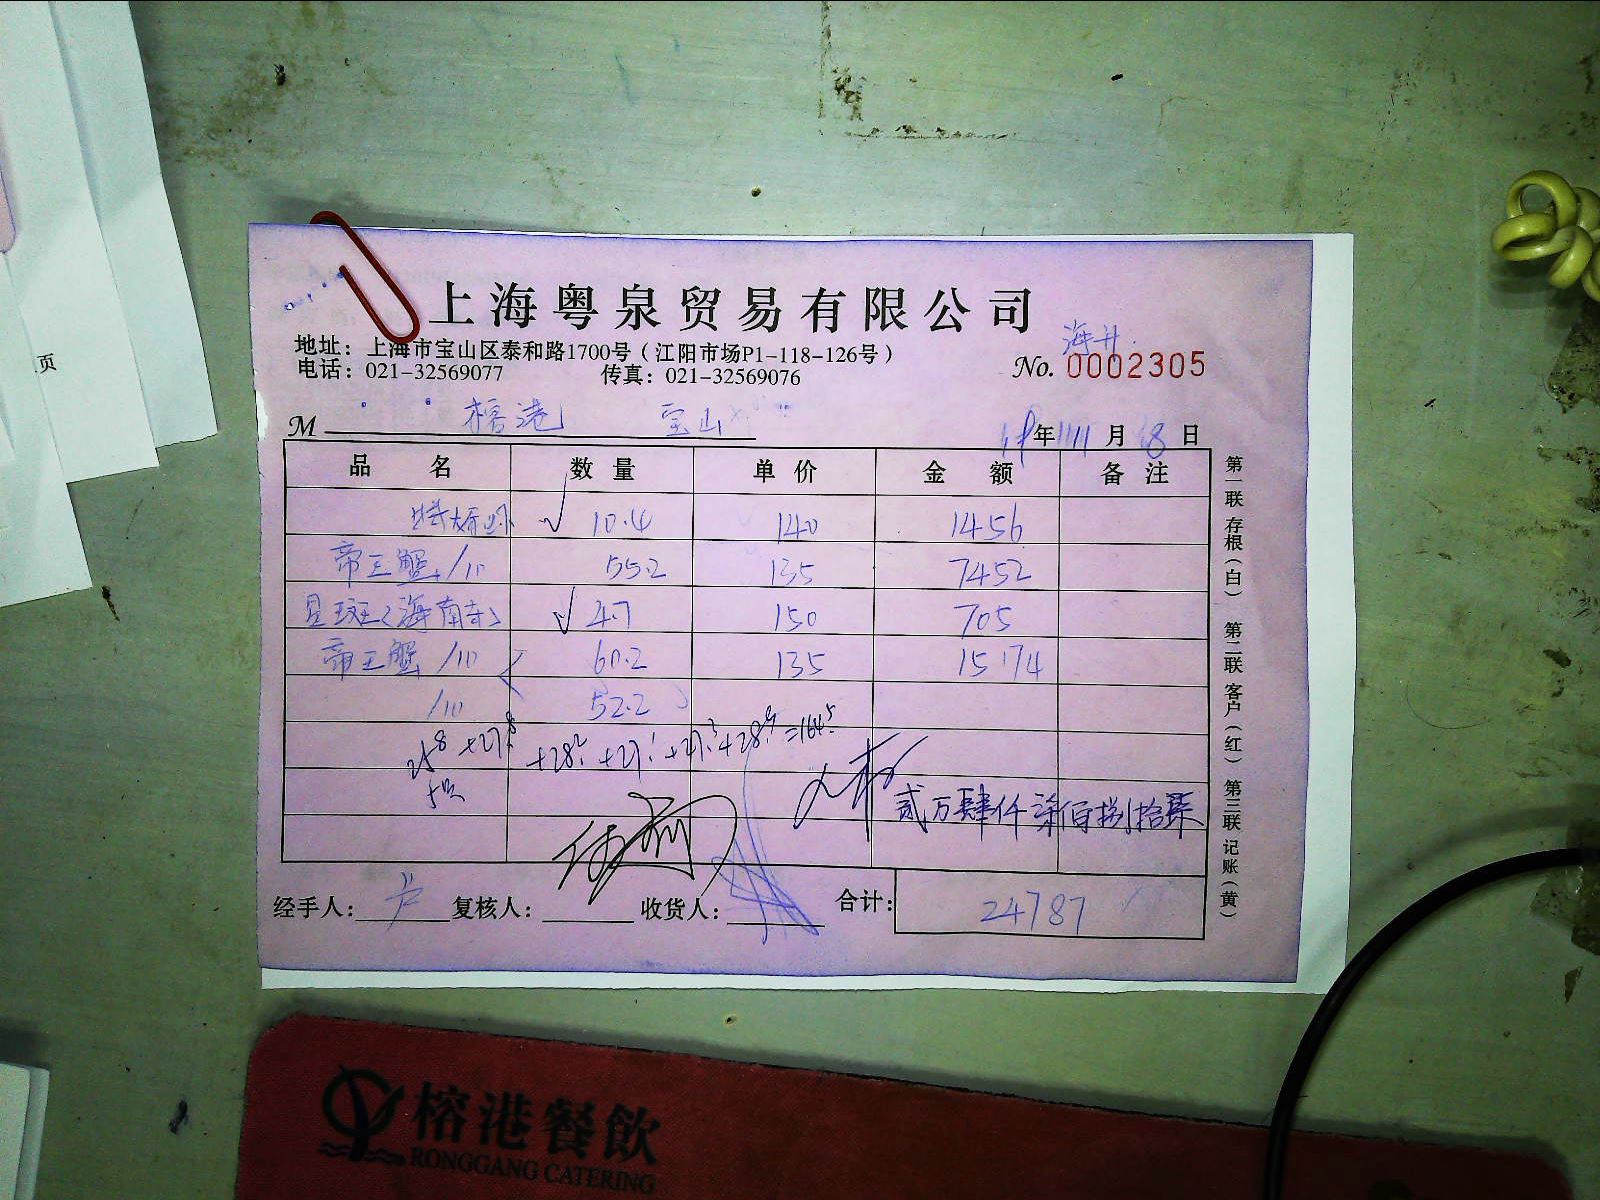 页
上海粤泉贸易有限公司
地址：上海市宝山区泰和路1700号（江阳市场P1-118-126号）
电话：021-32569077 传真：021-32569076
No. 0002305
M 榕港 宝山
年 11 月 18 日
品名 数量 单价 金额 备注
10.4 140 1456
帝王蟹 /10 55.2 135 7452
星斑（海南） 4.7 150 705
帝王蟹 /10 60.2 135 15174
/10 52.2
贰万肆仟柒佰捌拾柒
经手人： 复核人： 收货人： 合计： 24787
第一联 存根（白） 第二联 客户（红） 第三联 记账（黄）
榕港餐飲
RONGGANG CATERING